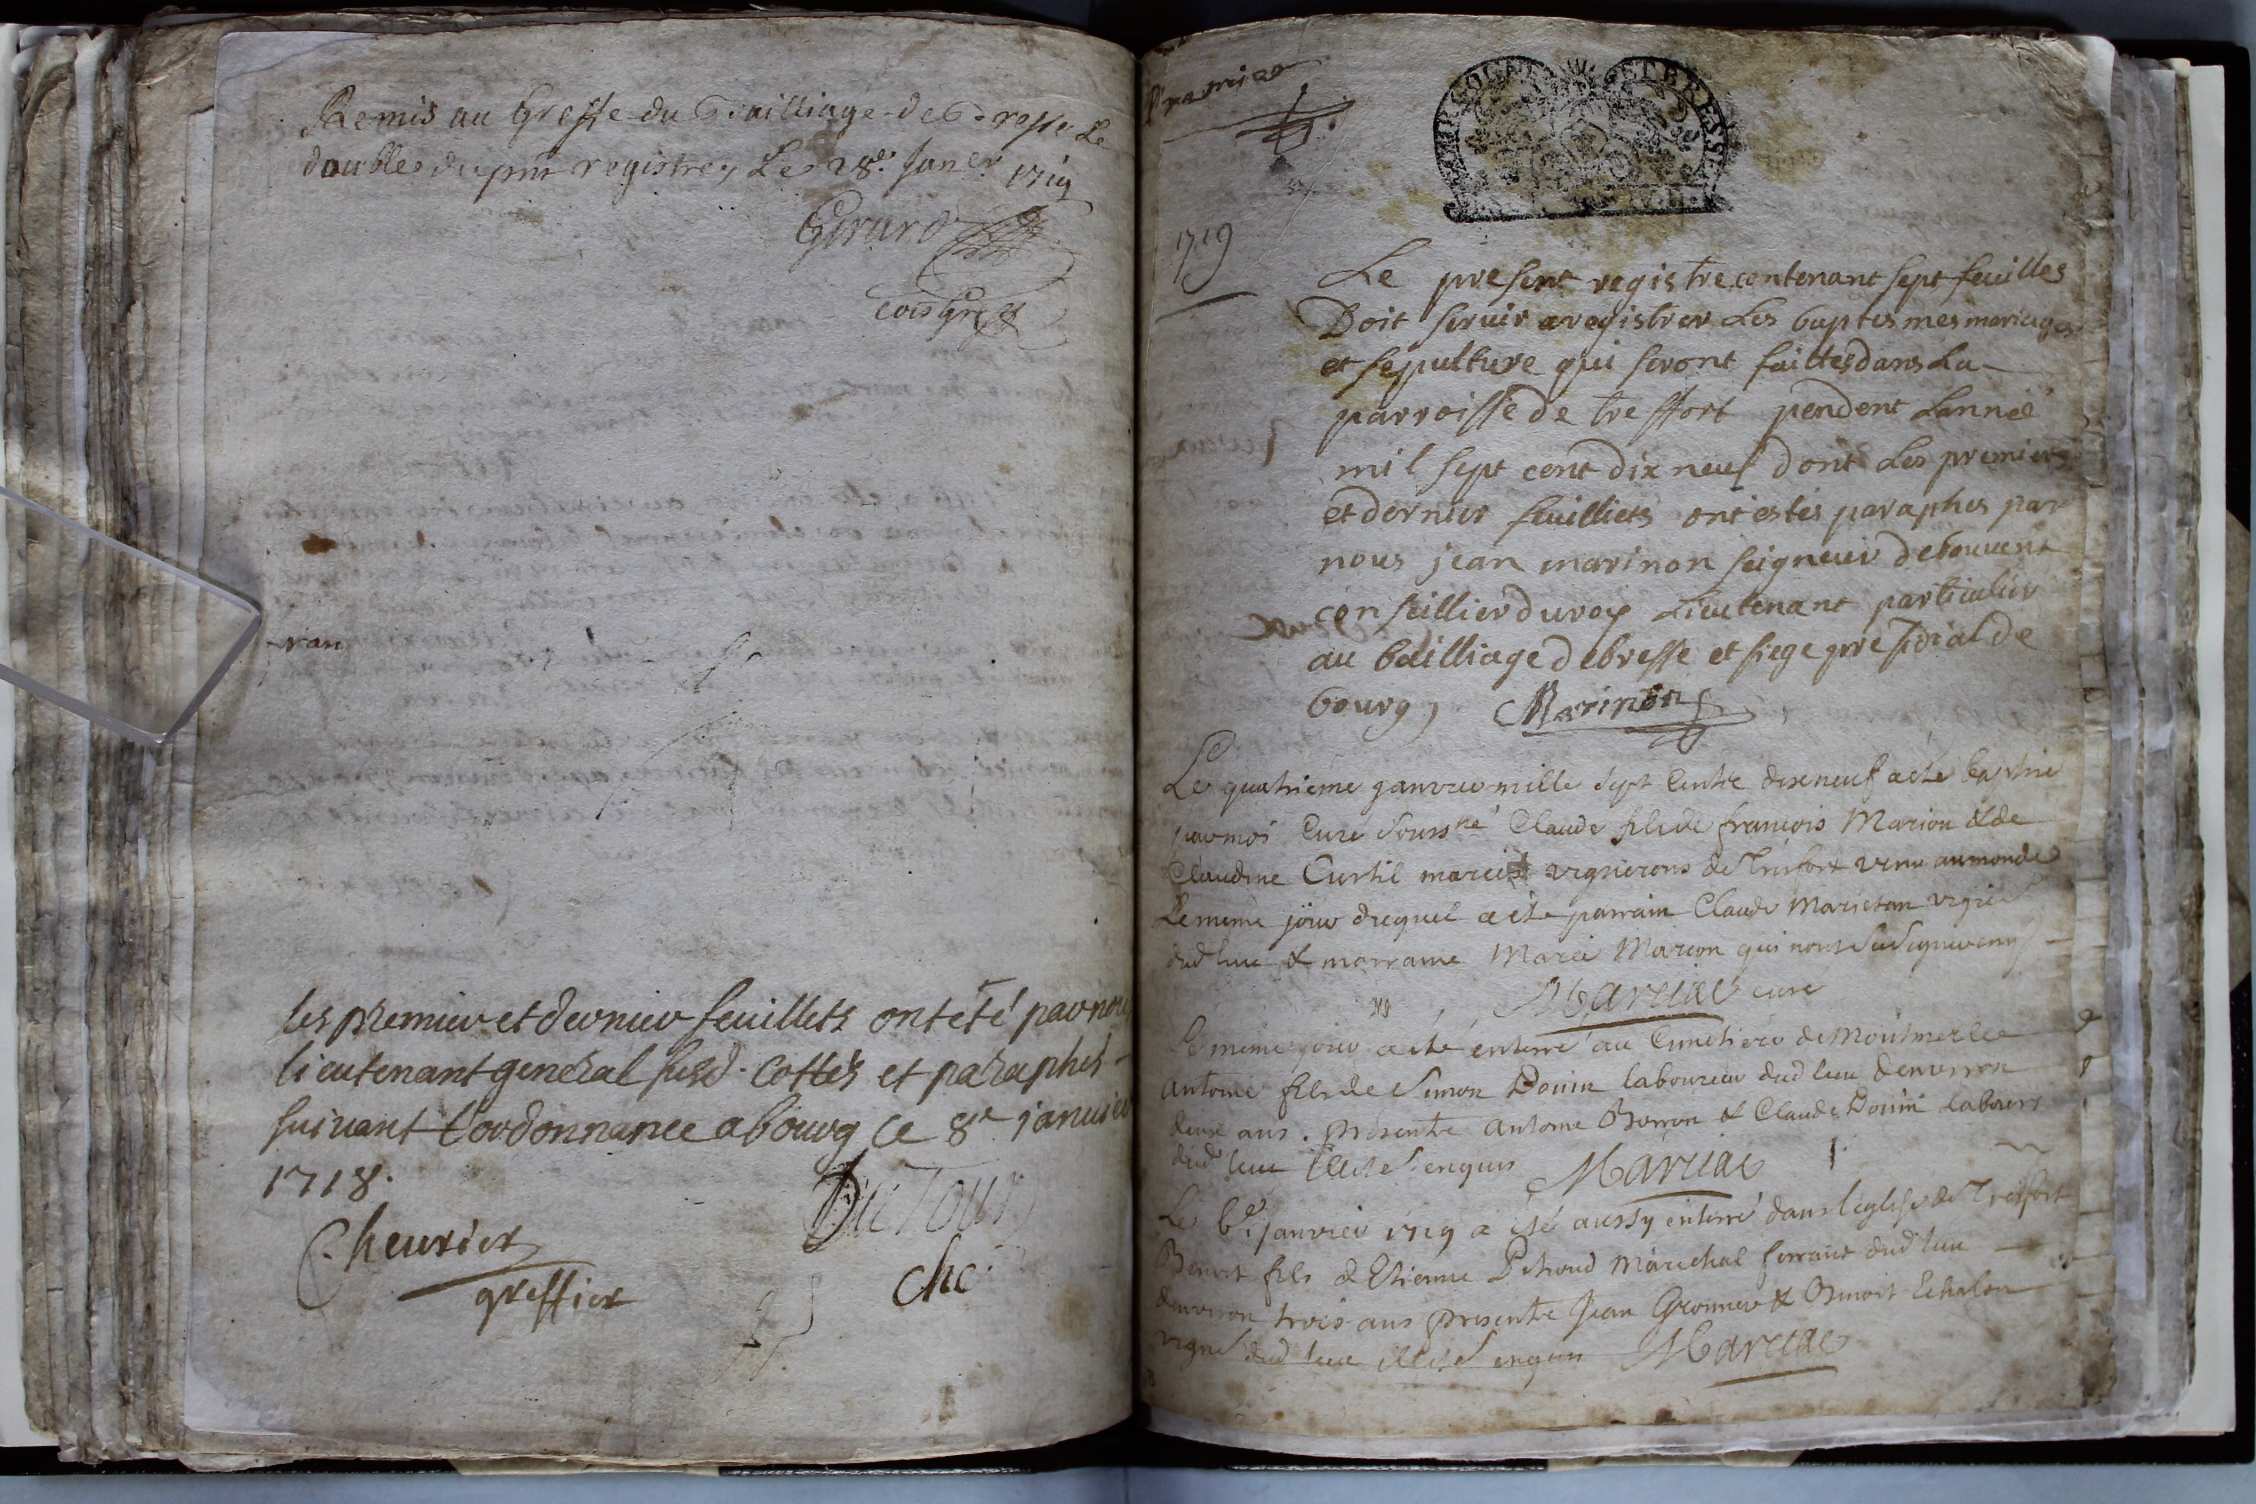 Remis au Greffe du Bailliage de Bresse Le
double du pnt registre, Le 28e Janer 1719
Girard
Les premier et dernier feuillets ont été par nous
lieutenant general susd. cottés et paraphés
suivant l'ordonnance a bourg ce 8e janvier
1718.
DuTour
Cheurier
greffier
che
premier
1719
Le present registre contenant sept feuilles
Doit servir a registrer Les baptesmes mariages
et sepulture qui seront faittes dans La
parroisse de treffort pendent Lannee
mil sept cent dix neuf dont Les premiers
et dernier feuilliets ont estes paraphes par
nous jean marinon seigneur de
conseillier du roy Lieutenant particulier
au bailliage de bresse et siege presidial de
bourg, Marinon
Le quatrieme janvier mille sept cents dixneuf a été
par moi Curé soussné Claude fils de francois Marion & de
Claudine Curtil vignerons de Treffort venu au monde
Le meme jour duquel a été parrain Claude Marietan
dud lieu & marraine Marie Marion qui nont su signer
Marciac curé
Le meme jour a été enterré au Cimetiere de Montmerle
Antoine fils de Simon Donin laboureur dud lieu denviron
deux ans. presents Antoine & Claude Donin Labours
dud lieu enquis Marciac
Le 6e janvier 1719 a été aussy enterré dans leglise de Treffort
Benoit fils d'Etienne Marechal ferrant dud lieu
denviron trois ans presents Jean & Benoit Echalon
dud lieu enquis Marciac